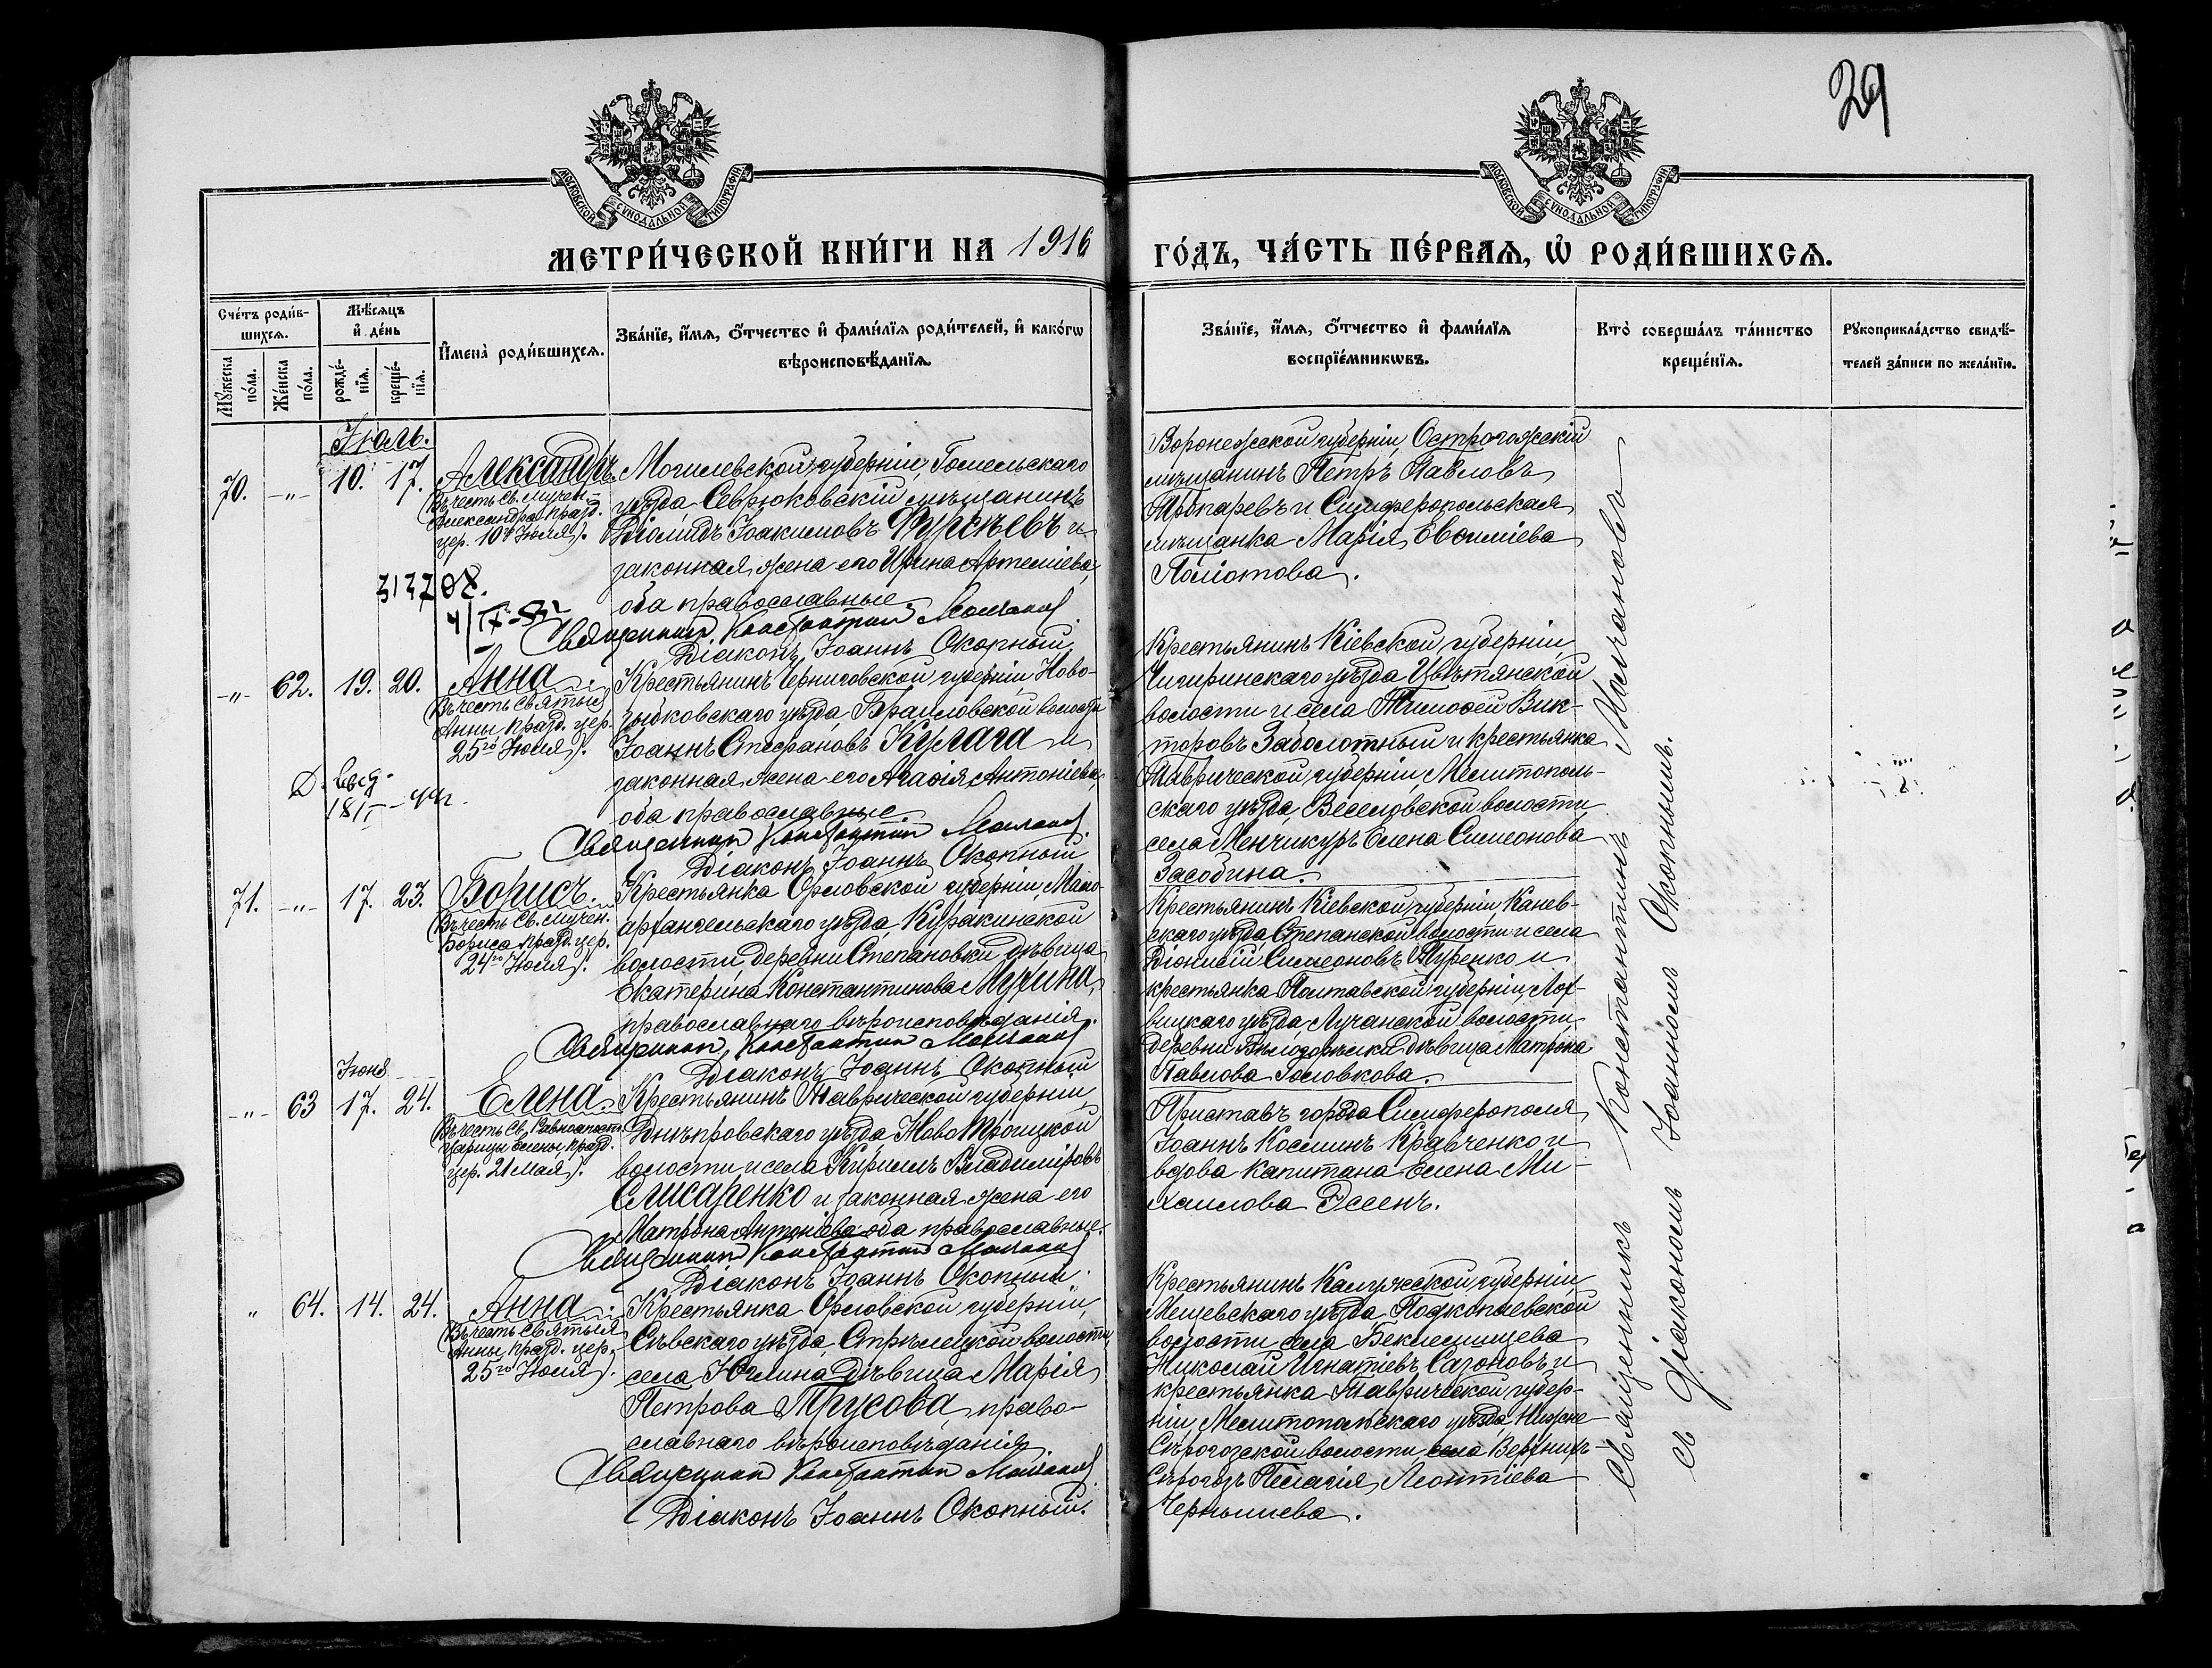 29
МОСКОВСКОЙ СѴНОДАЛЬНОЙ ТИПОГРАФІИ
МОСКОВСКОЙ СѴНОДАЛЬНОЙ ТИПОГРАФІИ
МЕТРИ́ЧЕСКОЙ КНИ́ГИ НА 1916
ГО́ДЪ, ЧА́СТЬ ПЕ́РВАѦ, Ѡ҆ РОДИ́ВШИХСѦ.
Счетъ роди́вшихсѧ.
Мꙋжеска по́ла.
Же́нска по́ла.
Мѣсѧцъ и҆ де́нь
рожде́нїѧ.
креще́нїѧ.
И҆мена̀ роди́вшихсѧ.
Зва́нїе, и҆́мѧ, ѻ҆́тчество и҆ фами́лїѧ роди́телей, и҆ како́гѡ
вѣроисповѣ́данїѧ.
Зва́нїе, и҆́мѧ, ѻ҆́тчество и҆ фами́лїѧ
воспрїе́мникѡвъ.
Кто̀ соверша́лъ та́инство
креще́нїѧ.
Рꙋкоприкла́дство свидѣ́-
телей за́писи по жела́нїю.
Іюль.
70. -"- 10. 17.
Александръ.
(Въ честь Св. мучен.
Александра празд.
цер. 10го Іюля).
Могилевской губерніи, Гомельскаго
уѣзда Севрюковскій мѣщанинъ
Діомидъ Іоакимовъ Фурсѣевъ и
законная жена его Ирина Артеміева,
оба православные.
Священникъ Константинъ
Діаконъ Іоаннъ Окопный.
313708.
Воронежской губерніи, Острогожскій
мѣщанинъ Петръ Павловъ
и Симферопольская
мѣщанка Марія Евѳиміева
-"- 62. 19. 20.
Анна
(Въ честь Святыя
Анны празд. цер.
25го Іюля).
Крестьянинъ Черниговской губерніи, Ново-
зыбковскаго уѣзда, волости
Іоаннъ Стефановъ Кулага и
законная жена его Агаѳія Антоніева,
оба православные
Священникъ Константинъ
Діаконъ Іоаннъ Окопный
Крестьянинъ Кіевской губерніи,
Чигиринскаго уѣзда Цвѣтянской
волости и села Тимоѳей Вик-
торовъ Заболотный и крестьянка
Таврической губерніи, Мелитополь-
скаго уѣзда, Веселовской волости,
села Менчикуръ Елена Симеонова
Засобина.
71. -"- 17. 23.
Борисъ.
(Въ честь Св. мучен.
Бориса празд. цер.
24го Іюля).
Крестьянка Орловской губерніи, Мало-
архангельскаго уѣзда Куракинской
волости, деревни Степановки дѣвица
Екатерина Константинова Мухина,
православнаго вѣроисповѣданія.
Священникъ Константинъ
Діаконъ Іоаннъ Окопный
Крестьянинъ Кіевской губерніи, Канев-
скаго уѣзда, Степанской волости и села
Діонисій Симеоновъ и
крестьянка Полтавской губерніи, Лох-
вицкаго уѣзда, Лучанской волости,
деревни дѣвица Матрона
Павлова Головкова.
Іюня
-"- 63 17. 24.
Елена.
(Въ честь Св. Равноапост.
Царицы Елены, празд.
цер. 21 Мая).
Крестьянинъ Таврической губерніи,
Днѣпровскаго уѣзда Ново Троицкой
волости и села Кириллъ Владиміровъ
Слисаренко и законная жена его
Матрона Антоніева оба православные.
Священникъ Константинъ
Діаконъ Іоаннъ Окопный.
Приставъ города Симферополя
Іоаннъ Косминъ Кравченко и
вдова капитана Елена Ми-
хаилова Эссенъ.
" 64. 14. 24.
Анна
(Въ честь Святыя
Анны празд. цер.
25го Іюля).
Крестьянка Орловской губерніи,
Сѣвскаго уѣзда, Стрѣлецкой волости,
села Юшина дѣвица Марія
Петрова Трусова, право-
славнаго вѣроисповѣданія.
Священникъ Константинъ
Діаконъ Іоаннъ Окопный.
Крестьянинъ Калужской губерніи
Мещевскаго уѣзда, Подкопаевской
волости, села Беклемищева
Николай Игнатіевъ Сазоновъ и
крестьянка Таврической губер-
ніи, Мелитопольскаго уѣзда, Нижне-
Сѣрогозской волости, села Верхнихъ-
Сѣрогозъ Пелагія Леонтіева
Чернышева.
Священникъ Константинъ
съ діакономъ Іоанномъ Окопнымъ.